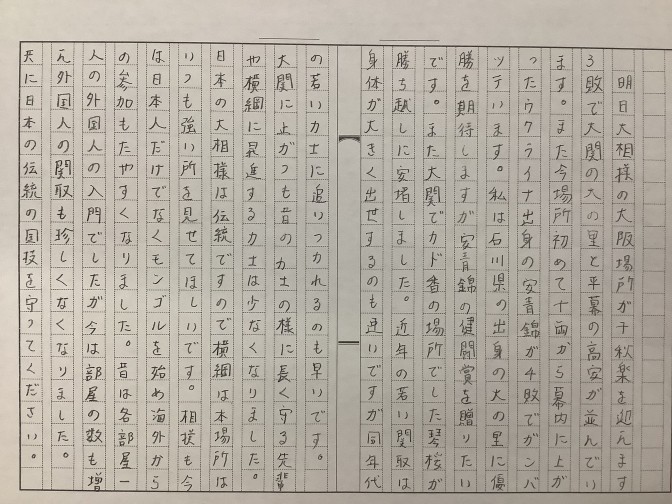 明日大相様の大阪場所が千秋楽を迎えます
3敗で大関の大の里と平幕の高安が並んでい
ます。また今場所初めて十両から幕内に上が
ったウクライナ出身の安青錦が4敗でガンバ
ッテいます。私は石川県の出身の大の里に優
勝を期待しますが安青錦の健闘賞を贈りたい
です。また大関でカド番の場所でした琴桜が
勝ち越しに安堵しました。近年の若い関取は
身体が大きく出世するのも速いですが同年代
の若い力士に追いつかれるのも早いです。
大関に上がつも昔の力士の様に長く守る先輩
や横綱に昇進する力士は少なくなりました。
日本の大相様は伝統ですので横綱は本場所は
いつも強い所を見せてほしいです。相撲も今
は日本人だけでなくモンゴルを始め海外から
の参加もたやすくなりました。昔は各部屋一
人の外国人の入門でしたが今は部屋の数も増
えん外国人の関取も珍しくなくなりました。
共に日本の伝統の国技を守ってください。